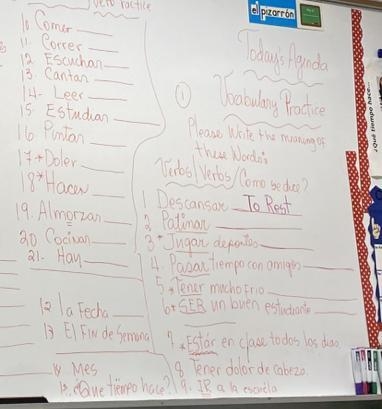 Verb Practice
10 Comer
11. Correr
12 Escuchan
13. Cantan
14. Leer
15 Estudian
16 Pintan
17 * Doler
18 * Hacer
19. Almorzan
20 Cocinan
21. Hay
12 la Fecha
13 El Fin de Semana
14 Mes
15. Que tiempo hace?
el pizarrón
Today's Agenda
① Vocabulary Practice
Please Write the meaning of
these Words:
Verbs/Verbos/Como se dice?
1 Descansar To Rest
2 Patinar
3 * Jugar deportes
4. Pasar tiempo con amigos
5 * Tener mucho frio
6 * SER un buen estudiante
7 * Estár en clase todos los dias
8 Tener dolor de cabeza.
9. IR a la escuela
¿Qué tiempo hace...